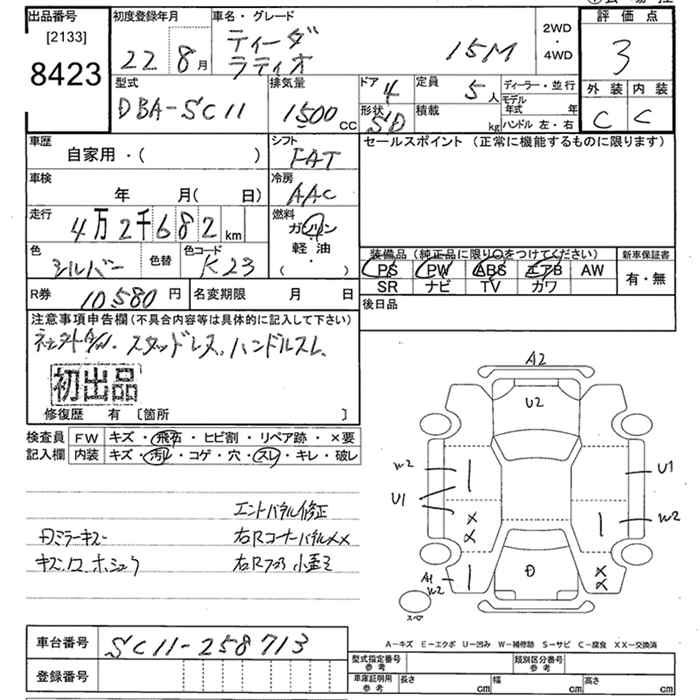 出品番号
[2133]
8423
初度登録年月
22 8月
車名・グレード
ティーダ
ラティオ
15M
2WD
・
4WD
評価点
3
外装 内装
C C
型式
DBA-SC11
排気量
1500 CC
ドア 4
形状 SD
定員 5人
積載 kg
ディーラー・並行
モデル年式 年
ハンドル 左・右
車歴
自家用・( )
シフト
FAT
セールスポイント(正常に機能するものに限ります)
車検
年 月( 日)
冷房
AAC
走行
4万2千682km
燃料
ガソリン
軽油
・
( )
色
シルバー
色替
色コード
K23
装備品(純正品に限り○をつけてください)
PS PW ABS エアB AW
SR ナビ TV カワ
新車保証書
有・無
R券 10,580円
名変期限 月 日
後日品
注意事項申告欄(不具合内容等は具体的に記入して下さい)
スタッドレス、ハンドルスレ
初出品
修復歴 有 〔箇所 〕
検査員記入欄
FW キズ・飛石・ヒビ割・リペア跡・×要
内装 キズ・汚レ・コゲ・穴・スレ・キレ・破レ
エンドパネル修正
右Rコーナーパネル××
A2
U2
W2
U1
U1
W2
A1
W2
スペア
車台番号 SC11-258713
登録番号
A-キズ E-エクボ U-凹み W-補修跡 S-サビ C-腐食 XX-交換済
型式指定番号 参考
類別区分番号 参考
車庫証明用 参考
長さ cm 幅 cm 高さ cm